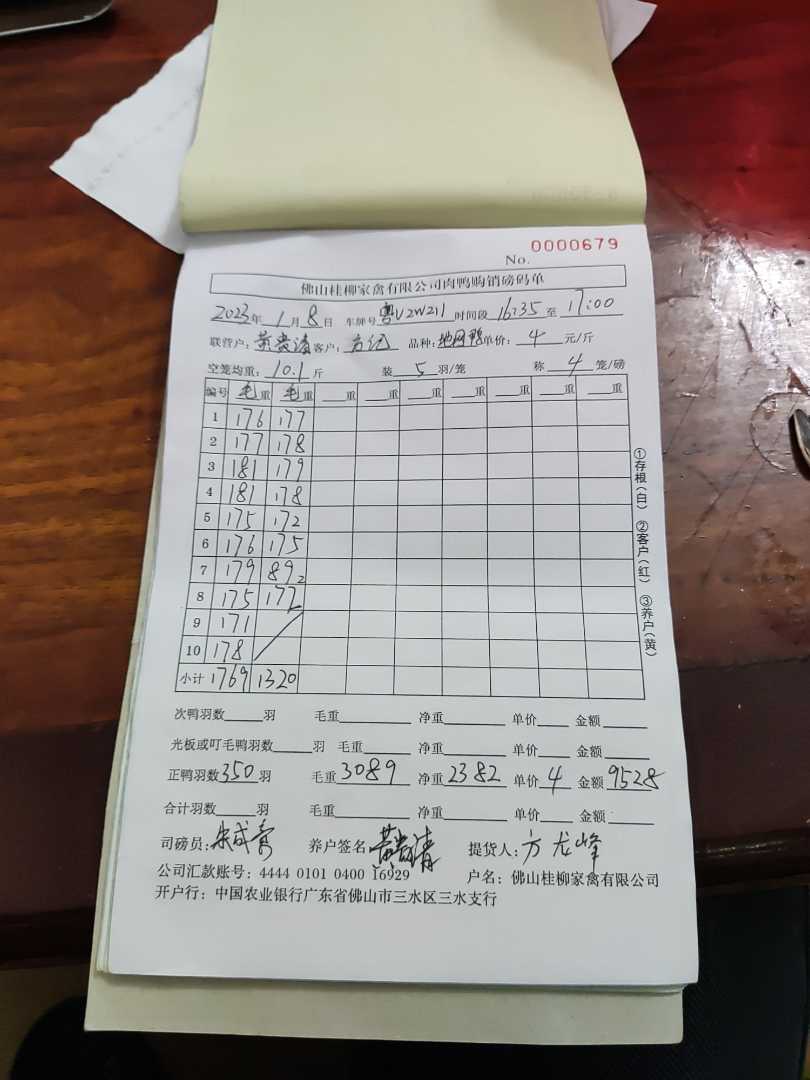 No. 0000679
佛山桂柳家禽有限公司肉鸭购销磅码单
2023年 1月 8日 车牌号粤V2W211 时间段 16:35 至 17:00
联营户：黄贵清 客户：方记 品种： 单价：4 元/斤
空笼均重：10.1 斤 装 5 羽/笼 称 4 笼/磅
编号 毛重 毛重 重 重 重 重 重 重
1 176 177
2 177 178
3 181 179
4 181 178
5 175 172
6 176 175
7 179 89 2
8 175 172
9 171
10 178
小计 1769 1320
次鸭羽数 羽 毛重 净重 单价 金额
光板或叮毛鸭羽数 羽 毛重 净重 单价 金额
正鸭羽数350羽 毛重3089 净重2382 单价4 金额9528
合计羽数 羽 毛重 净重 单价 金额
司磅员： 养户签名黄贵清 提货人：方龙峰
公司汇款账号：4444 0101 0400 16929 户名：佛山桂柳家禽有限公司
开户行：中国农业银行广东省佛山市三水区三水支行
①存根（白） ②客户（红） ③养户（黄）